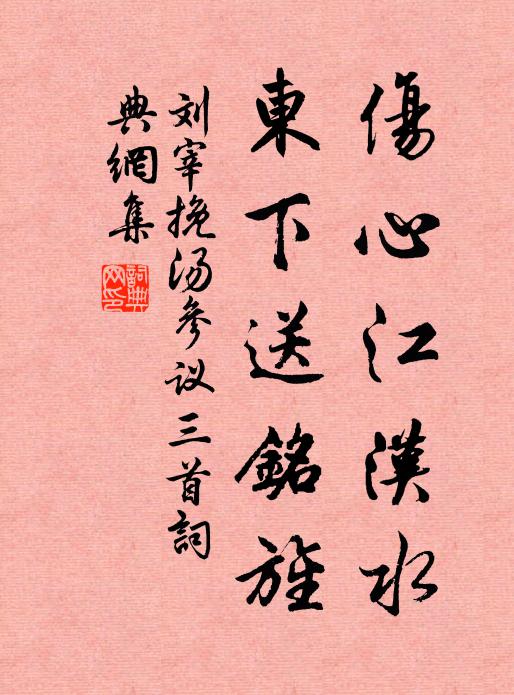 傷心江漢水
東下送銘旌
刘宰挽汤參议三首詞
典網集
詞典網印